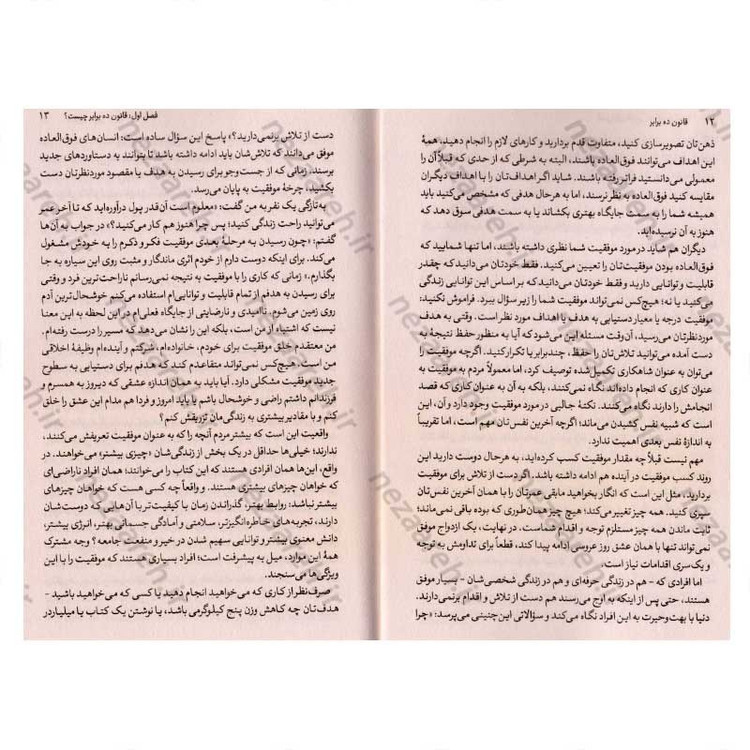 ۱۲ قانون ده برابر
ذهن‌تان تصویرسازی کنید، متفاوت قدم بردارید و کارهای لازم را انجام دهید، همهٔ
این اهداف می‌توانند فوق‌العاده باشند، البته به شرطی که از حدی که قبلاً آن را
معمولی می‌دانستید فراتر رفته باشند. شاید اگر اهداف‌تان را با اهداف دیگران
مقایسه کنید فوق‌العاده به نظر نرسند، اما به هرحال هدفی که مشخص می‌کنید باید
همیشه شما را به سمت جایگاه بهتری بکشاند یا به سمت هدفی سوق دهد که
هنوز به آن نرسیده‌اید.
دیگران هم شاید در مورد موفقیت شما نظری داشته باشند، اما تنها شمایید که
فوق‌العاده بودن موفقیت‌تان را تعیین می‌کنید. فقط خودتان می‌دانید که چقدر
قابلیت و توانایی دارید و فقط خودتان هستید که براساس این توانایی زندگی
می‌کنید یا نه؛ هیچ‌کس نمی‌تواند موفقیت شما را زیر سؤال ببرد. فراموش نکنید:
موفقیت درجه یا معیار دستیابی به هدف یا اهداف مورد نظر است. وقتی به هدف
موردنظرتان می‌رسید، آن‌وقت مسئله این می‌شود که آیا به منظور حفظ نتیجهٔ به
دست آمده می‌توانید تلاش‌تان را حفظ، چندبرابر یا تکرار کنید. اگرچه موفقیت را
می‌توان به عنوان شاهکاری تکمیل‌شده توصیف کرد، اما معمولاً مردم به موفقیت به
عنوان کاری که انجام داده‌اند نگاه نمی‌کنند، بلکه به آن به عنوان کاری که قصد
انجامش را دارند نگاه می‌کنند. نکتهٔ جالبی در مورد موفقیت وجود دارد و آن، این
است که شبیه نفس کشیدن می‌ماند؛ اگرچه آخرین نفس‌تان مهم است، اما تقریباً
به اندازهٔ نفس بعدی اهمیت ندارد.
مهم نیست قبلاً چه مقدار موفقیت کسب کرده‌اید، به هرحال دوست دارید این
روند کسب موفقیت در آینده هم ادامه داشته باشد. اگر دست از تلاش برای موفقیت
بردارید، مثل این است که انگار بخواهید مابقی عمرتان را با همان آخرین نفس‌تان
سپری کنید. همه چیز تغییر می‌کند؛ هیچ چیز همان‌طوری که بوده باقی نمی‌ماند؛
ثابت ماندن همه چیز مستلزم توجه و اقدام شماست. در نهایت، یک ازدواج موفق
نمی‌تواند تنها با همان عشق روز عروسی ادامه پیدا کند، قطعاً برای تداومش به توجه
و یک سری اقدامات نیاز است.
اما افرادی که - هم در زندگی حرفه‌ای و هم در زندگی شخصی‌شان - بسیار موفق
هستند، حتی پس از اینکه به اوج می‌رسند هم دست از تلاش و اقدام برنمی‌دارند.
دنیا با بهت‌وحیرت به این افراد نگاه می‌کند و سؤالاتی این‌چنینی می‌پرسد: «چرا
فصل اول: قانون ده برابر چیست؟ ۱۳
دست از تلاش برنمی‌دارید؟» پاسخ این سؤال ساده است: انسان‌های فوق‌العاده
موفق می‌دانند که تلاش‌شان باید ادامه داشته باشد تا بتوانند به دستاوردهای جدید
برسند. زمانی که از جست‌وجو برای رسیدن به هدف یا مقصود موردنظرتان دست
بکشید، چرخهٔ موفقیت به پایان می‌رسد.
به‌تازگی یک نفر به من گفت: «معلوم است آن‌قدر پول درآورده‌اید که تا آخر عمر
می‌توانید راحت زندگی کنید؛ پس چرا هنوز هم کار می‌کنید؟» در جواب به آن‌ها
گفتم: «چون رسیدن به مرحلهٔ بعدی موفقیت فکر و ذکرم را به خودش مشغول
می‌کند. برای اینکه دوست دارم از خودم اثری ماندگار و مثبت روی این سیاره به جا
بگذارم.» زمانی که کاری را با موفقیت به نتیجه نمی‌رسانم ناراحت‌ترین فرد و وقتی
برای رسیدن به هدفم از تمام قابلیت و توانایی‌ام استفاده می‌کنم خوشحال‌ترین آدم
روی زمین می‌شوم. ناامیدی و نارضایتی از جایگاه فعلی‌ام در این لحظه به این معنا
نیست که اشتباه از من است، بلکه این را نشان می‌دهد که مسیر را درست رفته‌ام.
من معتقدم خلق موفقیت برای خودم، خانواده‌ام، شرکتم و آینده‌ام وظیفهٔ اخلاقی
من است. هیچ‌کس نمی‌تواند متقاعدم کند که هدفم برای دستیابی به سطوح
جدید موفقیت مشکلی دارد. آیا باید به همان اندازه عشقی که دیروز به همسرم و
فرزندانم داشتم راضی و خوشحال باشم یا باید امروز و فردا هم مدام این عشق را خلق
کنم و با مقادیر بیشتری به زندگی‌مان تزریقش کنم؟
واقعیت این است که بیشتر مردم آنچه را که به عنوان موفقیت تعریفش می‌کنند،
ندارند؛ خیلی‌ها حداقل در یک بخش از زندگی‌شان «چیزی بیشتر» می‌خواهند. در
واقع، این‌ها همان افرادی هستند که این کتاب را می‌خوانند؛ همان افراد ناراضی‌ای
که خواهان چیزهای بیشتری هستند. و واقعاً چه کسی هست که خواهان چیزهای
بیشتر نباشد: روابط بهتر، گذراندن زمان با کیفیت‌تر با آن‌هایی که دوست‌شان
دارند، تجربه‌های خاطره‌انگیزتر، سلامتی و آمادگی جسمانی بهتر، انرژی بیشتر،
دانش معنوی بیشتر و توانایی سهیم شدن در خیر و منفعت جامعه؟ وجه مشترک
همهٔ این موارد، میل به پیشرفت است؛ افراد بسیاری هستند که موفقیت را با این
ویژگی‌ها می‌سنجند.
صرف‌نظر از کاری که می‌خواهید انجام دهید یا کسی که می‌خواهید باشید -
هدف‌تان چه کاهش وزن پنج کیلوگرمی باشد، یا نوشتن یک کتاب یا میلیاردر